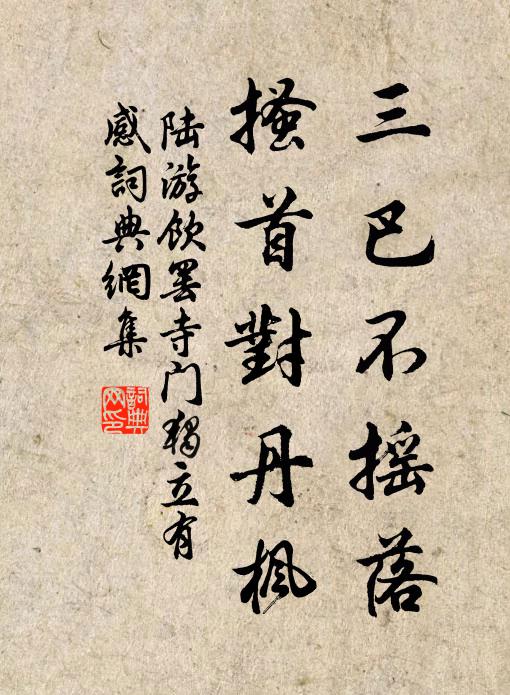 三巴不摇落
搔首對丹楓
陆游飲罢寺门獨立有
感詞典網集
詞典
网印